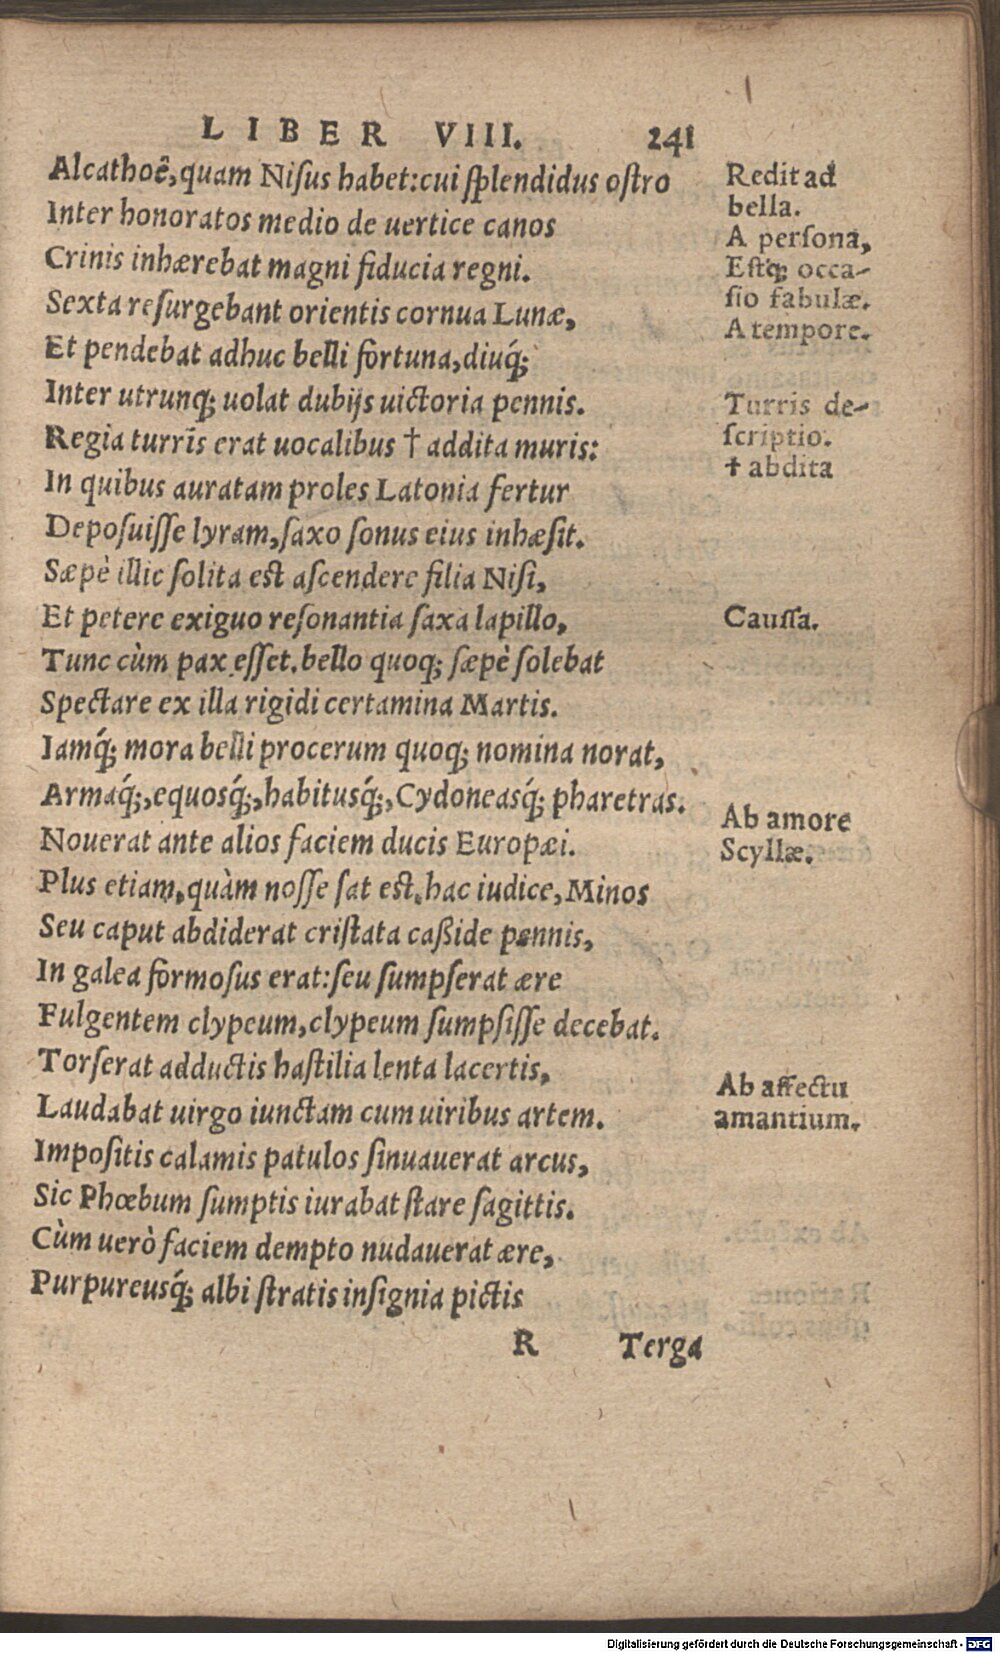 LIBER VIII. 241
Alcathoê, quam Niſus habet: cui ſplendidus oſtro
Inter honoratos medio de uertice canos
Crinis inhærebat magni fiducia regni.
Sexta reſurgebant orientis cornua Lunæ,
Et pendebat adhuc belli fortuna, diuq́;
Inter utrunq; uolat dubijs uictoria pennis.
Regia turris erat uocalibus † addita muris:
In quibus auratam proles Latonia fertur
Depoſuiſſe lyram, ſaxo ſonus eius inhæſit.
Sæpè illic ſolita est aſcendere filia Niſi,
Et petere exiguo reſonantia ſaxa lapillo,
Tunc cùm pax eſſet. bello quoq; ſæpè ſolebat
Spectare ex illa rigidi certamina Martis.
Iamq́; mora belli procerum quoq; nomina norat,
Armaq́;, equosq́;, habitusq́;, Cydoneasq́; pharetras.
Nouerat ante alios faciem ducis Europæi.
Plus etiam, quàm noſſe ſat est. hac iudice, Minos
Seu caput abdiderat criſtata caßide pennis,
In galea formoſus erat: ſeu ſumpſerat ære
Fulgentem clypeum, clypeum ſumpſiſſe decebat.
Torſerat adductis haſtilia lenta lacertis,
Laudabat uirgo iunctam cum uiribus artem.
Impoſitis calamis patulos ſinuauerat arcus,
Sic Phœbum ſumptis iurabat ſtare ſagittis.
Cùm uerò faciem dempto nudauerat ære,
Purpureusq́; albi ſtratis inſignia pictis
R Terga
Redit ad
bella.
A perſona,
Eſtq́; occa-
ſio fabulæ.
A tempore.
Turris de-
ſcriptio.
† abdita
Cauſſa.
Ab amore
Scyllæ.
Ab affectu
amantium.
Digitalisierung gefördert durch die Deutsche Forschungsgemeinschaft - DFG